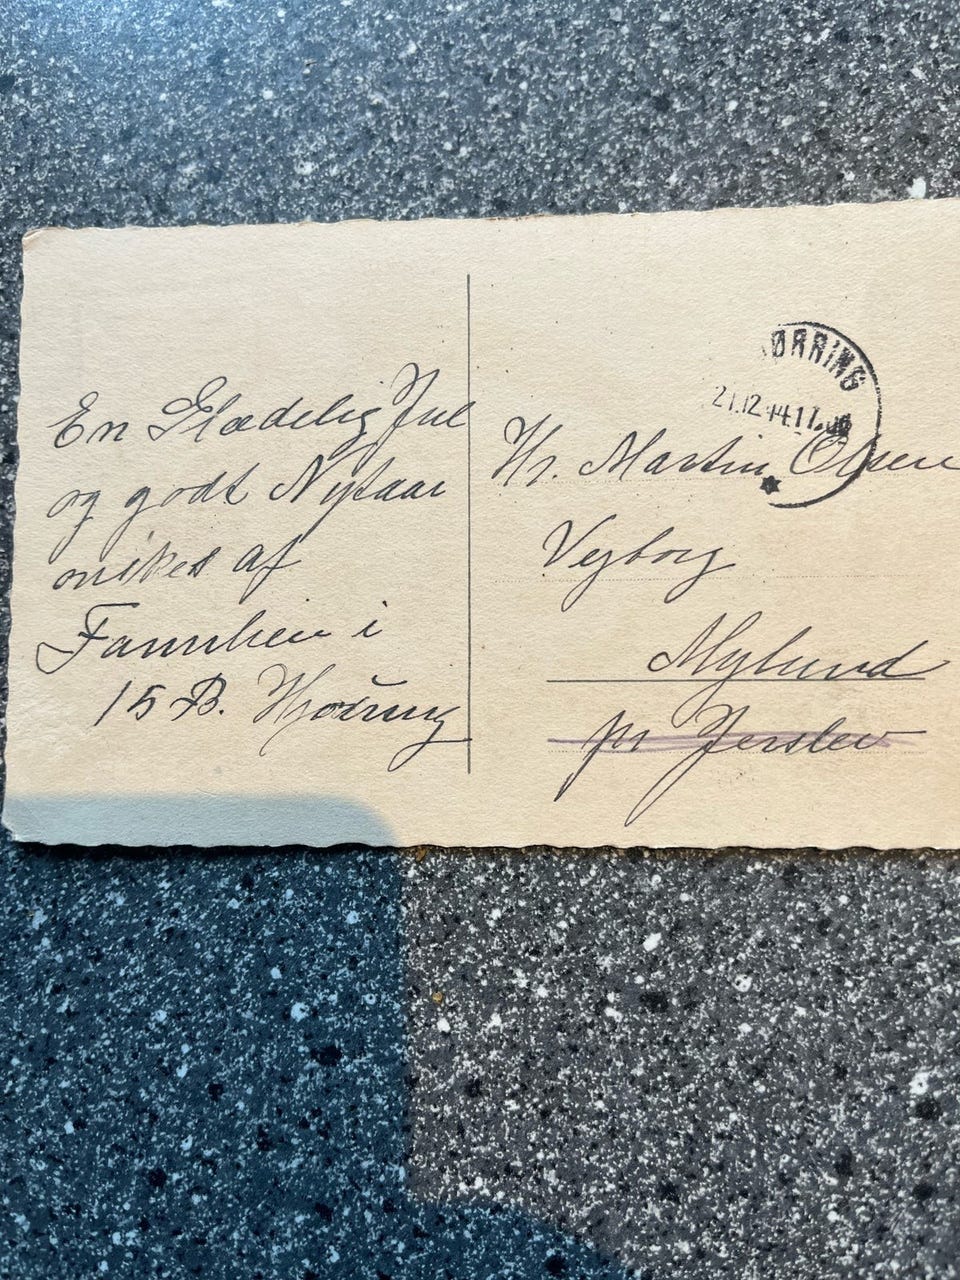 En Glædelig Jul
og godt Nytaar
ønskes af
Familien i
15 B. Hjørring
ØRRING
21.12.14.11
Hr. Martin Olsen
Vejborg
Mylund
pr Jerslev